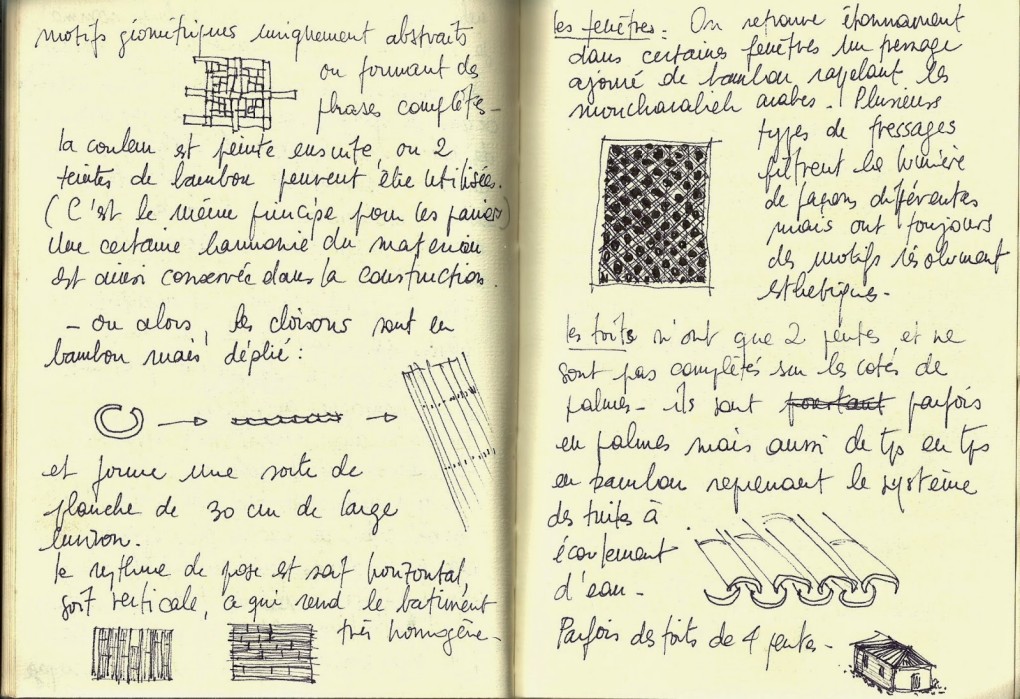 motifs géométriques uniquement abstraits
ou formant des
phrases complètes -
la couleur est peinte ensuite, ou 2
teintes de bambou peuvent être utilisées.
(C'est le même principe pour les paniers)
Une certaine harmonie du matériau
est ainsi conservée dans la construction.
- ou alors, les cloisons sont en
bambou mais déplié :
et forme une sorte de
planche de 30 cm de large
environ.
le rythme de pose est soit horizontal,
soit verticale, ce qui rend le batiment
très homogène -
les fenêtres : On retrouve étonnament
dans certaines fenêtres un
ajouré de bambou rappelant les
moucharabieh arabes - Plusieurs
types de tressages
filtrent la lumière
de façons différentes
mais ont toujours
des motifs résolument
esthetiques -
les toits n'ont que 2 pentes et ne
sont pas complétés sur les cotés de
palmes - ils sont pourtant parfois
en palmes mais aussi de tps en tps
en bambou reprenant le système
des tuiles à
écoulement
d'eau -
Parfois des toits de 4 pentes -